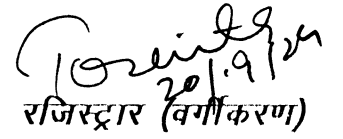 20/9/24
रजिस्ट्रार (वर्गीकरण)